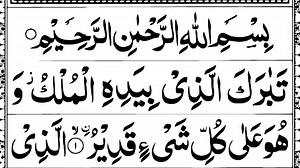 بِسْمِ اللهِ الرَّحْمٰنِ الرَّحِيْمِ ۝
تَبٰرَكَ الَّذِىْ بِيَدِهِ الْمُلْكُ ز وَ
هُوَ عَلٰى كُلِّ شَىْءٍ قَدِيْرُ ۨ ۙ ۝۱ الَّذِىْ